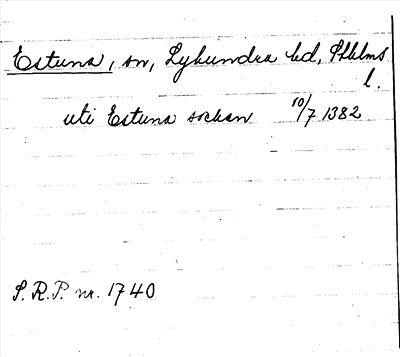 Estuna, sn, Lyhundra hd, Sthlms
l.
uti Estuna sokan 10/7 1382
S.R.P. nr. 1740